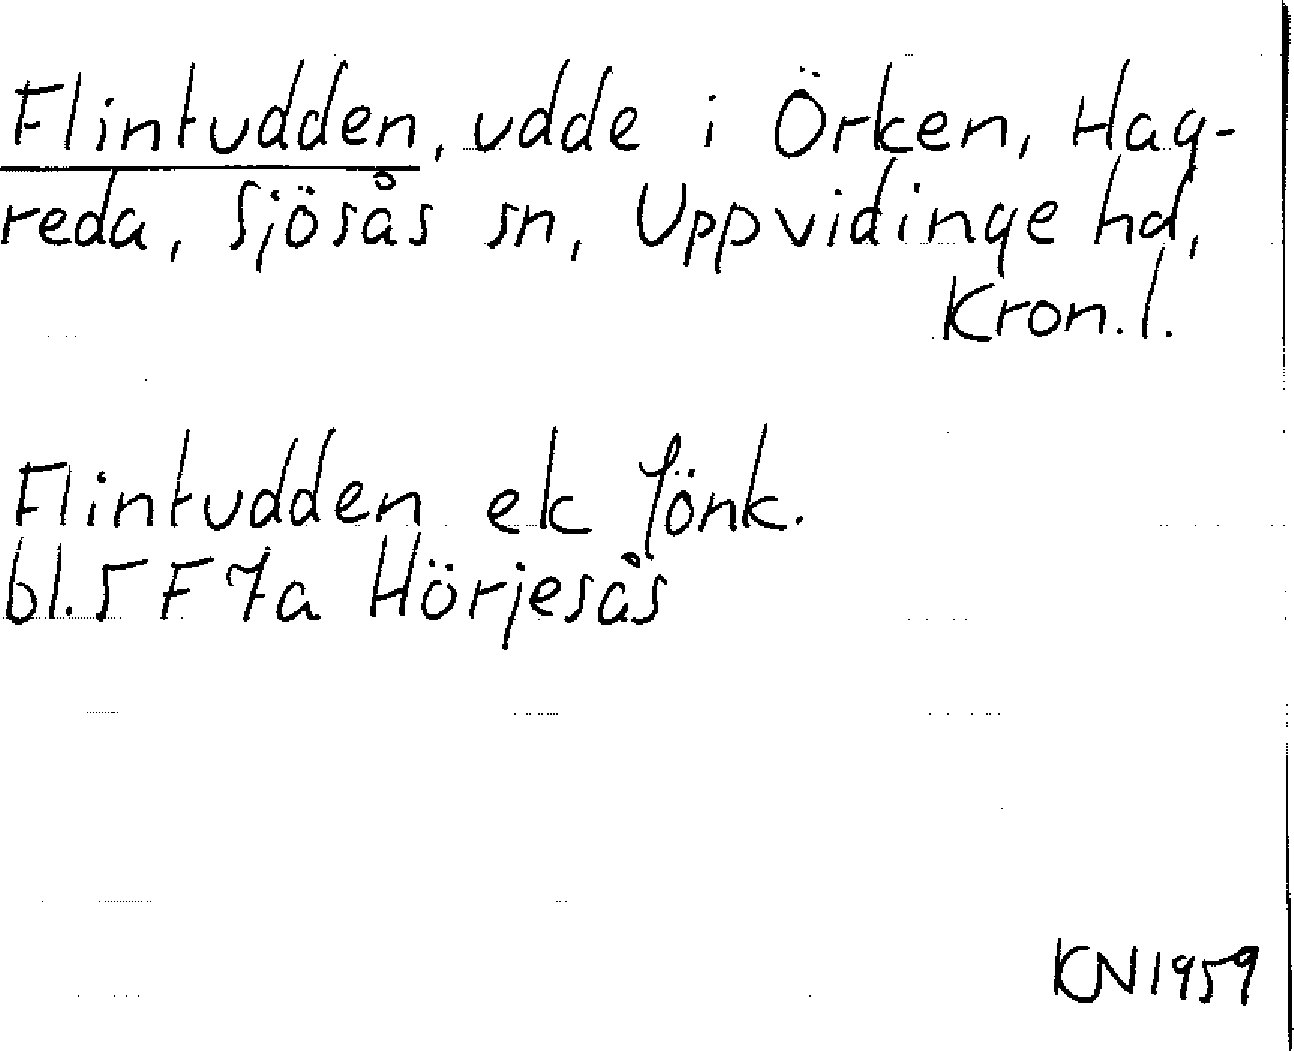 Flintudden, udde i Örken, Hag-
reda, Sjösås sn, Uppvidinge hd,
Kron.l.
Flintudden ek Jönk.
bl. 5 F 7a Hörjesås
KN 1959